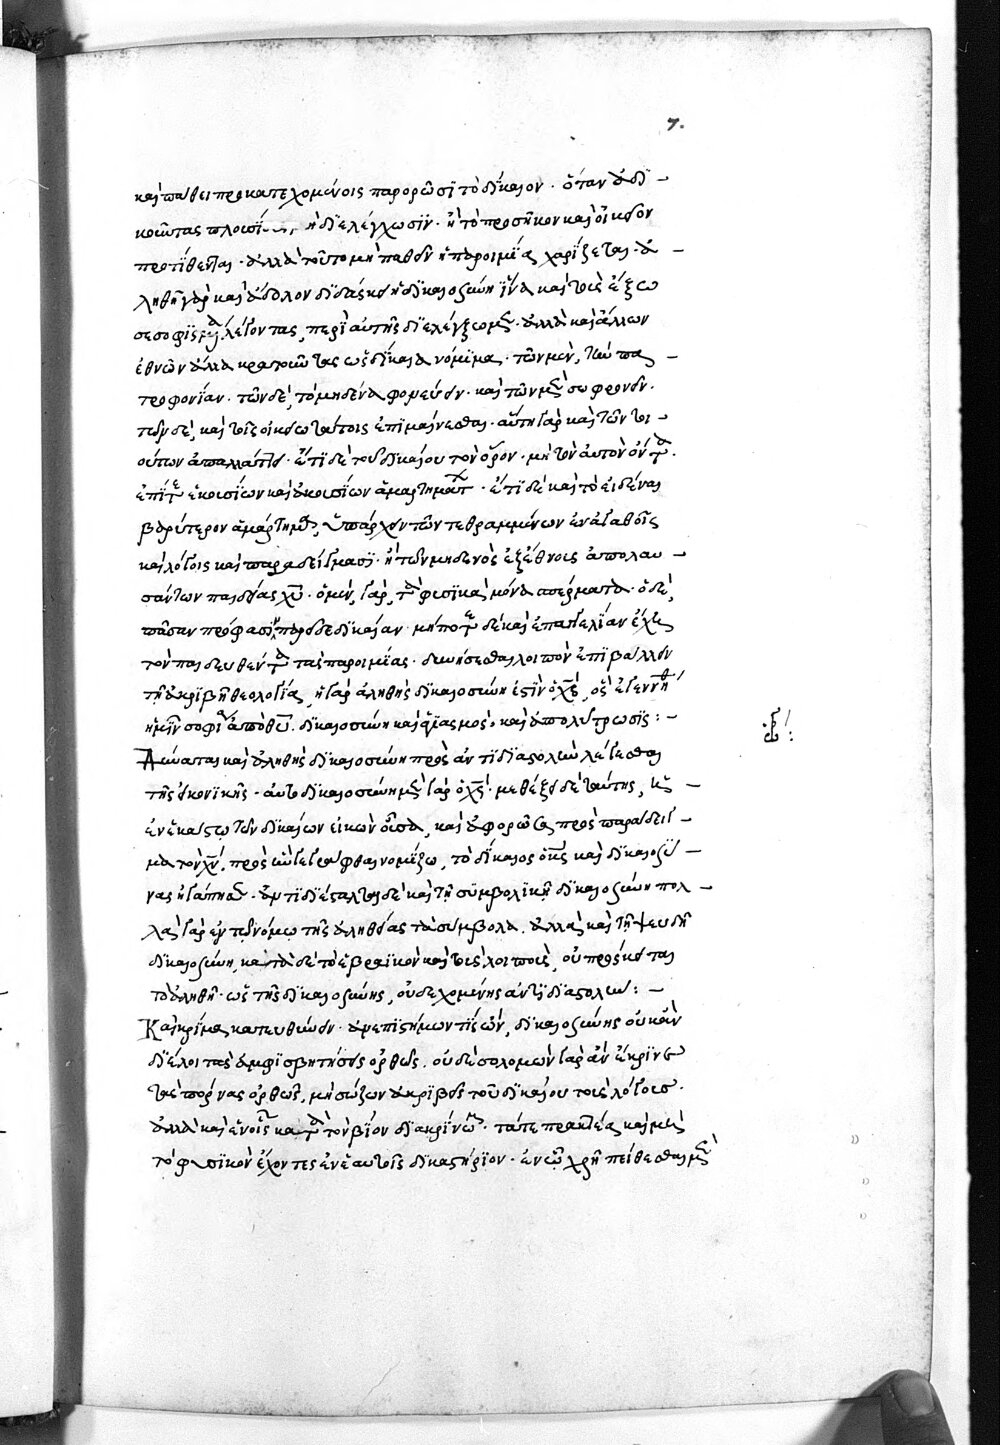 7.
καὶ πάθει προκατεχομένοις παρορῶσι τὸ δίκαιον · ὅταν ἀδι –
κοῦντας πλουσί ἢ διελέγχωσιν · ἢ τὸ προσῆκον καὶ οἰκεῖον
προτίθενται · ἀλλὰ τοῦτο μὴ παθεῖν ἡ παροιμία χαρίζεται · ἀ –
ληθῆ γὰρ καὶ ἄδολον διδάσκει δικαιοσύνην ἵνα καὶ τοὺς ἔξω
σεσοφισμ λέγοντας, περὶ αὐτῆς διελέγξωμεν · ἀλλὰ καὶ ἄλλων
ἐθνῶν ἄλλα κρατούντας ὡς δίκαια νόμιμα · τῶν μὲν, πα –
τροφονίαν · τῶν δὲ, τὸ μηδένα φονεύειν · καὶ τῶν μὲν σωφρονεῖν ·
τῶν δὲ, καὶ ἐπιμαίνεσθαι · αὕτη γὰρ καὶ τῶν
ούτων ἀπαλλάττει · ἔτι δὲ τοῦ δικαίου τὸν ὅρον · μὴ τὸν αὐτὸν
ἐπὶ ἑκουσίων καὶ ἀκουσίων ἁμαρτημάτων · ἔτι δὲ καὶ τὸ εἰδέναι
βαρύτερον ἁμάρτημα, ὑπάρχειν τῶν τεθραμμένων ἐν ἀγαθοῖς
καὶ λόγοις καὶ παραδείγμασι · ἢ τῶν μηδενὸς ἐξ ἔθνοις ἀπολαυ –
σάντων παιδείας χυ · ὁ μὲν, γὰρ, φυσικὰ μόνα σπέρματα · ὁ δὲ,
πᾶσαν πρόφασιν παρείδε δικαίαν · μήποτε δὲ καὶ ἐπαγγελίαν ἔχει
τὸν παιδευθέντα τὰς παροιμίας · δικαιοῦσθαι λοιπὸν ἐπιβάλλειν
τῇ ἀκριβῆ θεολογία, ἡ γὰρ ἀληθὴς δικαιοσύνη ἐστὶν ὁ χς, ὃς ἐγεννήθη
ἡμῖν σοφία ἀπὸ θυ · δικαιοσύνη καὶ ἁγιασμὸς καὶ ἀπολύτρωσις : –
Δύναται καὶ ἀληθὴς δικαιοσύνη πρὸς ἀντιδιαστολὴν λέγεσθαι
τῆς εἰκονικῆς · αὐτοδικαιοσύνη μὲν γὰρ ὁ χς · μεθέξει δὲ ταύτης, ἡ –
ἐν ἑκάστῳ τῶν δικαίων εἰκὼν οὖσα, καὶ ἀφορῶσα πρὸς παράδειγ –
μα τὸν χν, πρὸς ὃν γεγράφθαι νομίζω, τὸ δίκαιος ὁ κς καὶ δικαιοσύ –
νας ἠγάπησεν · ἀντιδιέσταλται δὲ καὶ τῇ συμβολικῇ δικαιοσύνῃ πολ –
λὰ γὰρ ἐν τῷ νόμῳ τῆς ἀληθείας τὰ σύμβολα · ἀλλὰ καὶ τῇ ψευδῆ
δικαιοσύνῃ, κατὰ δὲ τὸ ἑβραϊκὸν καὶ τοὺς λοιποὺς, οὐ πρόσκειται
τὸ ἀληθῆ · ὡς τῆς δικαιοσύνης, οὐ δεχομένης ἀντιδιαστολήν : –
Καὶ κρίμα κατευθύνειν · ἀνεπιστήμων τις ὢν, δικαιοσύνης οὐκ ἂν
διέλοι τὰς ἀμφισβητήσεις ὀρθῶς · οὐδὲ σολομὼν γὰρ ἂν ἔκρινε
τὰς πόρνας ὀρθῶς, μὴ σώζων ἀκριβεῖς τοῦ δικαίου τοὺς λόγους ·
ἀλλὰ καὶ ἐν οἷς κατὰ τὸν βίον διακρίνομεν · τά τε πρακτέα καὶ μὴ,
τὸ φυσικὸν ἔχοντες ἐν ἑαυτοῖς δικαστήριον · ἐν ᾧ χρὴ πείθεσθαι μὲν